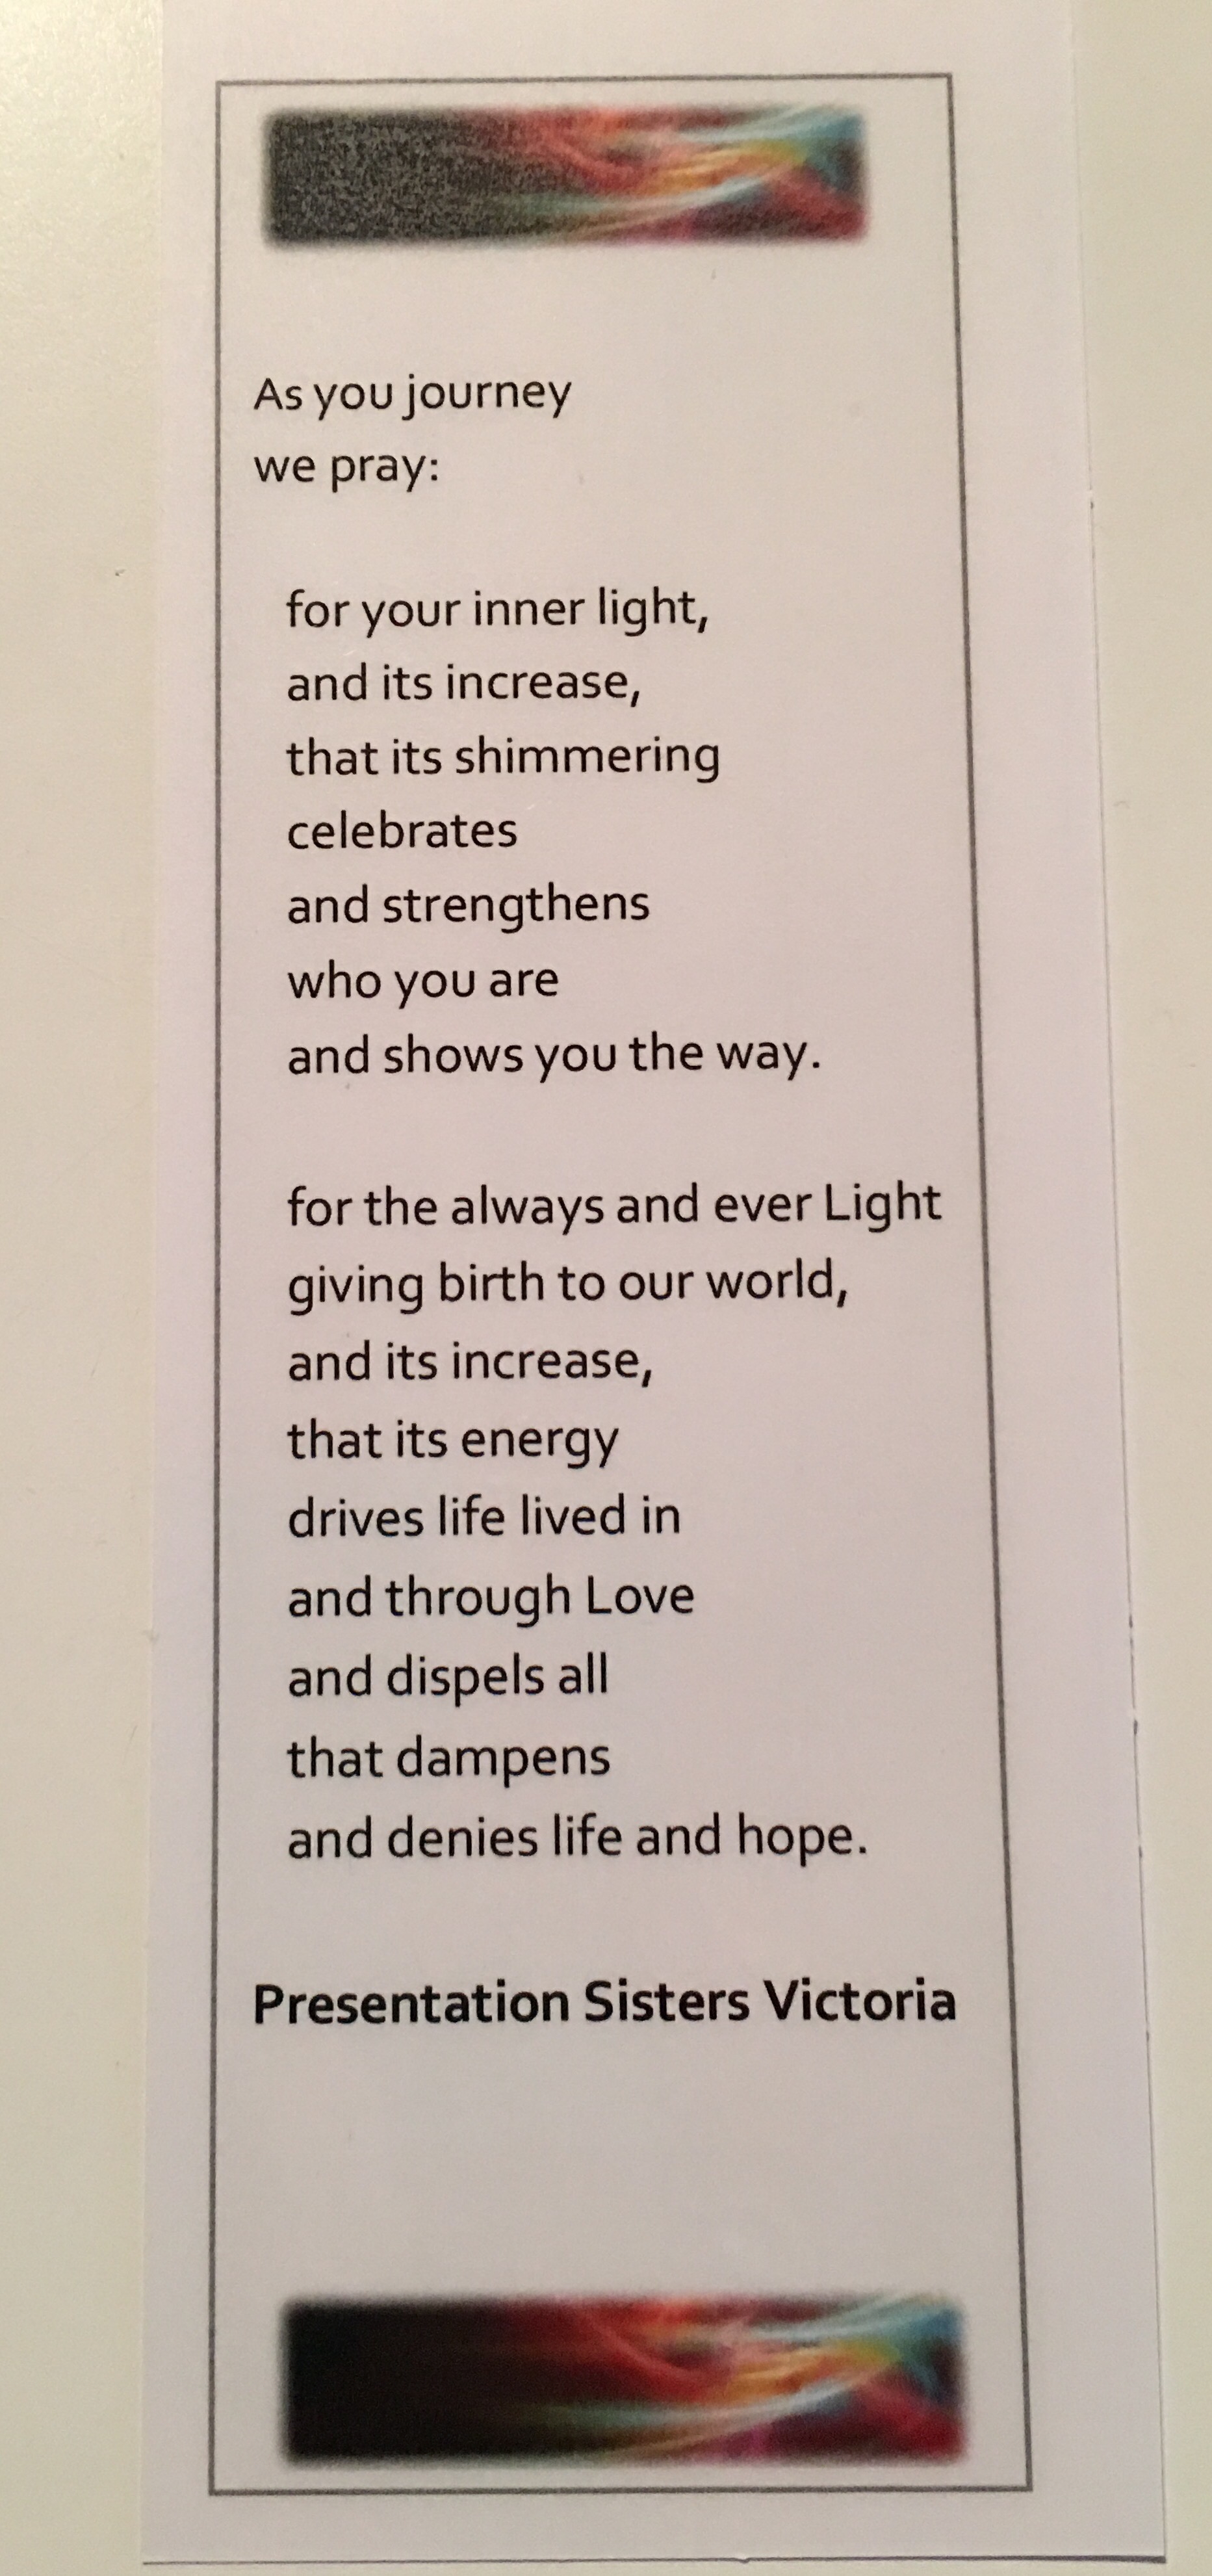 As you journey
we pray:
for your inner light,
and its increase,
that its shimmering
celebrates
and strengthens
who you are
and shows you the way.
for the always and ever Light
giving birth to our world,
and its increase,
that its energy
drives life lived in
and through Love
and dispels all
that dampens
and denies life and hope.
Presentation Sisters Victoria